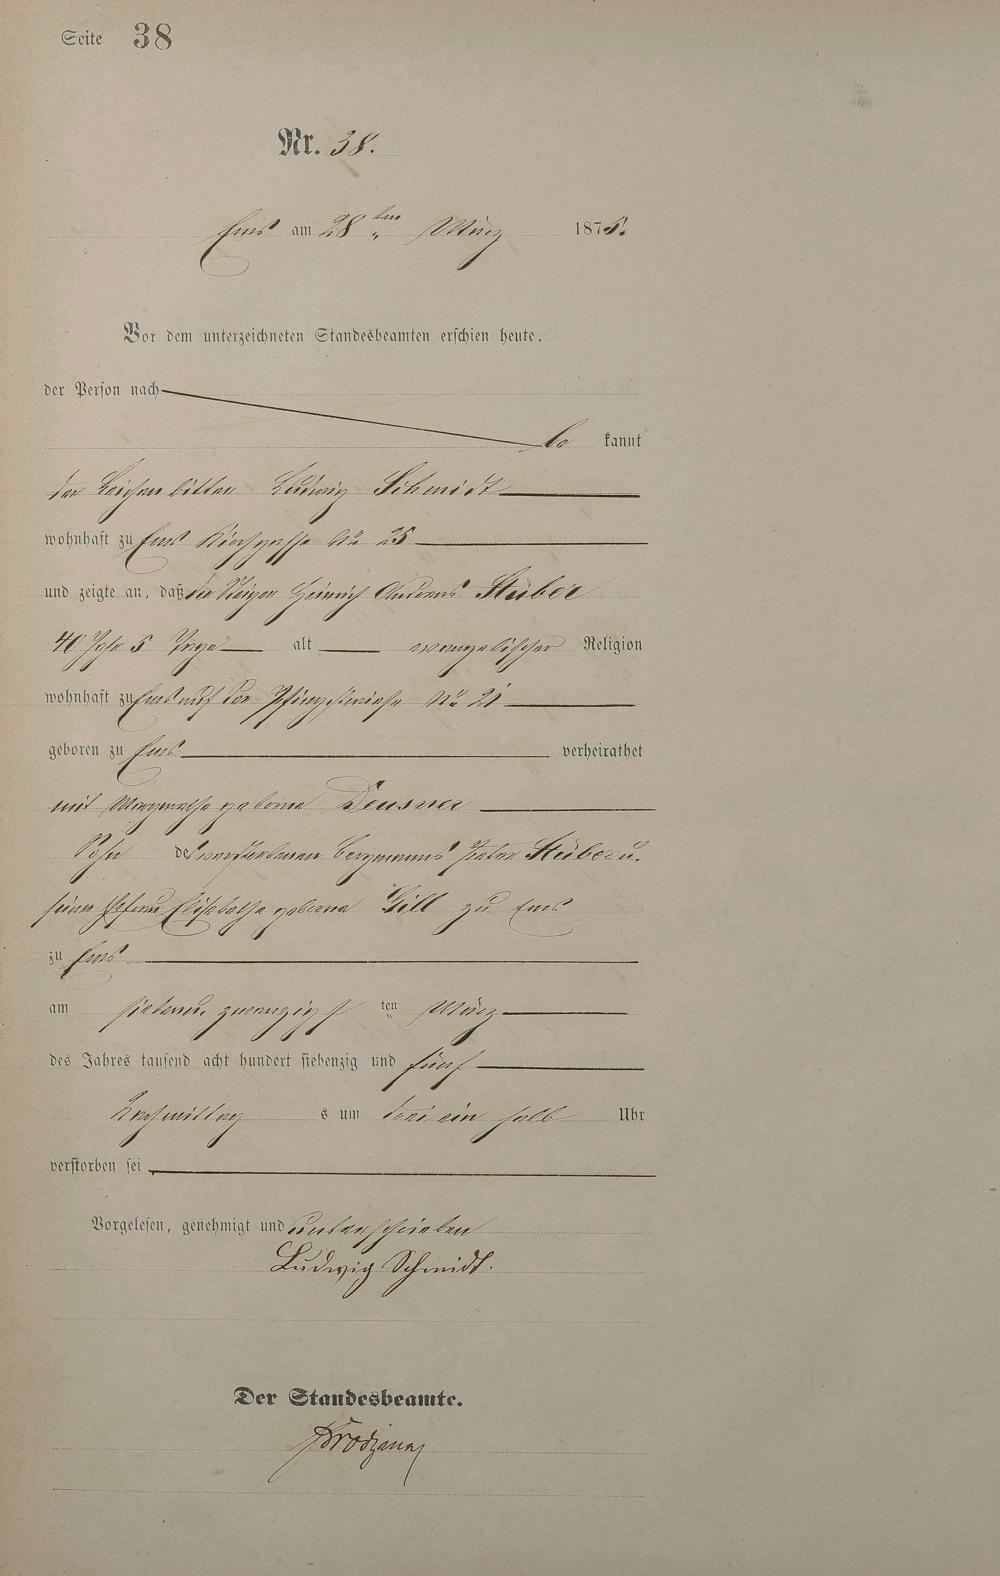 Seite 38
Nr. 38.
Ems am 28ten März 1875.
Vor dem unterzeichneten Standesbeamten erschien heute,
der Person nach
be kannt
der Leichenbitter Ludwig Schmidt
wohnhaft zu Ems Kirchgasse No 25
und zeigte an, daß der Steiger Heinrich Andreas Stüber
40 Jahr 5 Tage alt evangelischer Religion
wohnhaft zu Ems auf der Pfingstwiese No 21
geboren zu Ems verheirathet
mit Margarethe geborne Deusner
Sohn des verstorbenen Bergmanns Peter Stüber u.
seiner Ehefrau Elisabethe geborne Gill zu Ems
zu Ems
am sieben u. zwanzigs ten März
des Jahres tausend acht hundert siebenzig und fünf
Nachmittag s um drei ein halb Uhr
verstorben sei
Vorgelesen, genehmigt und unterschrieben
Ludwig Schmidt.
Der Standesbeamte.